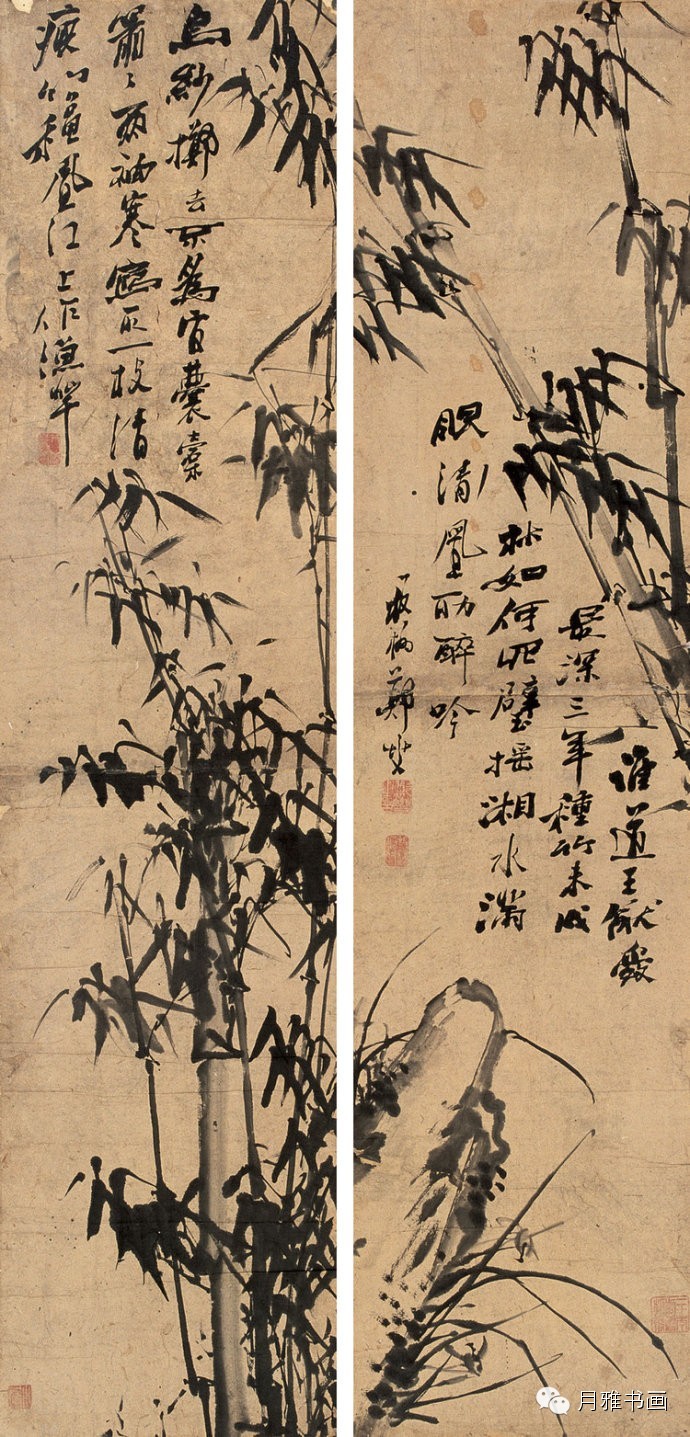 誰道王猷愛
最深三年種竹未成
林如何壁搖湘水滿
眼清風助醉吟
板橋鄭燮
烏紗擲去不為官囊橐
蕭〻兩袖寒寫取一枝清
瘦竹秋風江上作漁竿
月雅书画